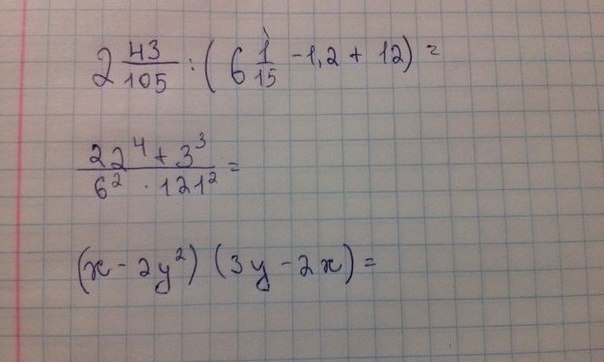 2 43/105 : (6 1/15 - 1,2 + 12) =
(22^4 + 3^3)/(6^2 · 121^2) =
(x - 2y^2) (3y - 2x) =